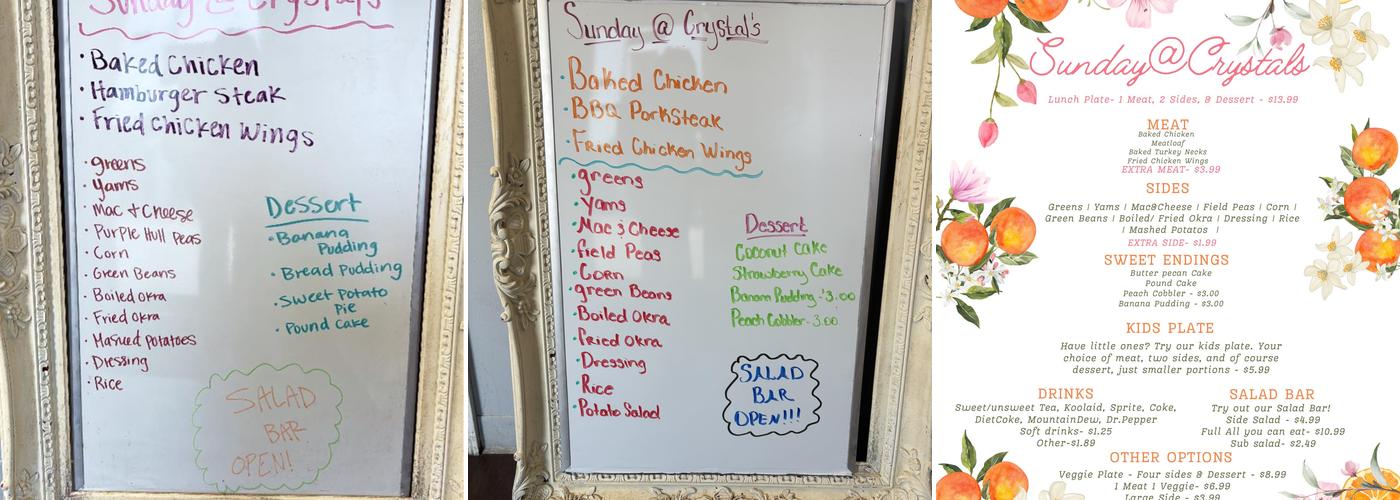 Sunday @ Crystals
• Baked Chicken
• Hamburger Steak
• Fried Chicken Wings
• greens
• Yams
• Mac + Cheese
• Purple Hull Peas
• Corn
• Green Beans
• Boiled Okra
• Fried Okra
• Mashed Potatoes
• Dressing
• Rice
Dessert
• Banana
Pudding
• Bread Pudding
• Sweet Potato
Pie
• Pound Cake
SALAD
BAR
OPEN!
Sunday @ Crystal's
• Baked Chicken
• BBQ PorkSteak
• Fried Chicken Wings
• greens
• Yams
• Mac & Cheese
• field Peas
• Corn
• green Beans
• Boiled Okra
• fried Okra
• Dressing
• Rice
• Potato Salad
Dessert
Coconut Cake
Strawberry Cake
Banana Pudding - 3.00
Peach Cobbler - 3.00
SALAD
BAR
OPEN!!!
Sunday@Crystals
Lunch Plate- 1 Meat, 2 Sides, & Dessert - $13.99
MEAT
Baked Chicken
Meatloaf
Baked Turkey Necks
Fried Chicken Wings
EXTRA MEAT- $3.99
SIDES
Greens | Yams | Mac&Cheese | Field Peas | Corn |
Green Beans | Boiled/ Fried Okra | Dressing | Rice
| Mashed Potatos |
EXTRA SIDE- $1.99
SWEET ENDINGS
Butter pecan Cake
Pound Cake
Peach Cobbler - $3.00
Banana Pudding - $3.00
KIDS PLATE
Have little ones? Try our kids plate. Your
choice of meat, two sides, and of course
dessert, just smaller portions - $5.99
DRINKS
Sweet/unsweet Tea, Koolaid, Sprite, Coke,
DietCoke, MountainDew, Dr.Pepper
Soft drinks- $1.25
Other-$1.89
SALAD BAR
Try out our Salad Bar!
Side Salad - $4.99
Full All you can eat- $10.99
Sub salad- $2.49
OTHER OPTIONS
Veggie Plate - Four sides & Dessert - $8.99
1 Meat 1 Veggie- $6.99
Large Side - $3.99